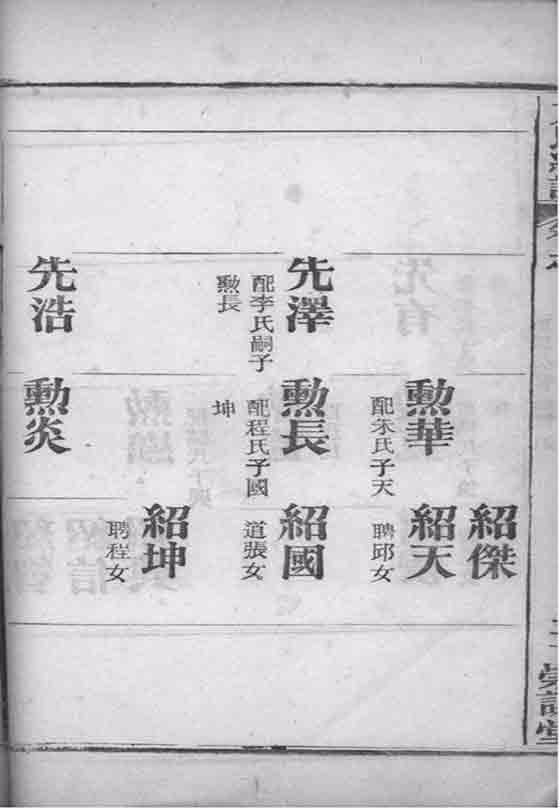 紹傑
勳華
配朱氏子天
紹天
聘邱女
先澤
配李氏嗣子
勳長
勳長
配程氏子國
坤
紹國
道張女
紹坤
聘程女
先浩
勳炎